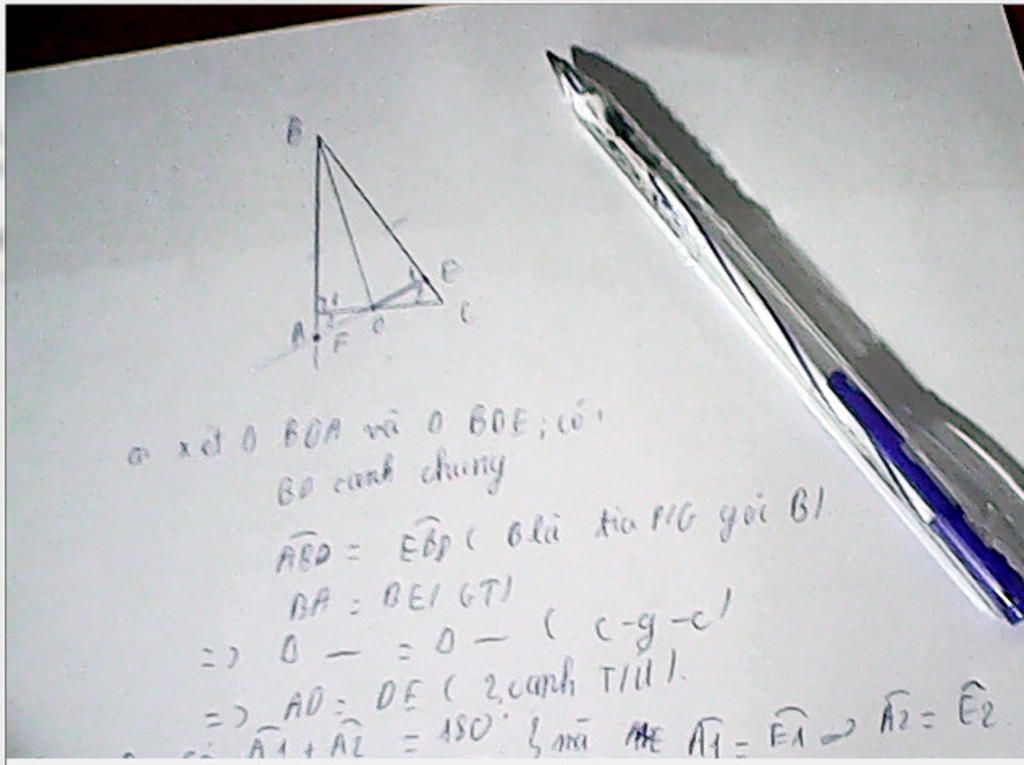 B
E
1
2
1
2
A
F
D
C
a) xét Δ BDA và Δ BDE, có:
BD cạnh chung
ABD = EBD ( B là tia P/G góc B)
BA = BE ( GT)
=> Δ — = Δ — ( c-g-c)
=> AD = DE ( 2 cạnh T/U).
A1 + A2 = 180° } mà A1 = E1 => A2 = E2